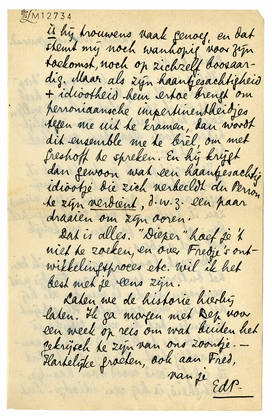 M12734
is hij trouwens vaak genoeg, en dat
stemt mij noch wanhopig voor zijn
toekomst, noch op zichzelf boosaar-
dig. Maar als zijn haantjesachtigheid
+ idiootheid hem ertoe brengt om
perroniaansche impertinentietjes
tegen me uit te kramen, dan wordt
dit ensemble me te bril, om met
Greshoff te spreken. En hij krijgt
dan gewoon wat een haantjesachtig
idiootje die zich verbeeldt du Perron
te zijn verdient, d.w.z. een paar
draaien om zijn ooren.
Dat is alles. "Dieper" hoef je 't
niet te zoeken, en over Fredje's ont-
wikkelingsproces etc. wil ik het
best met je eens zijn.
Laten we de historie hierbij
laten. Ik ga morgen met Bep voor
een week op reis om wat buiten het
gekrijsch te zijn van ons zoontje. —
Hartelijke groeten, ook aan Fred,
van je
EdP.